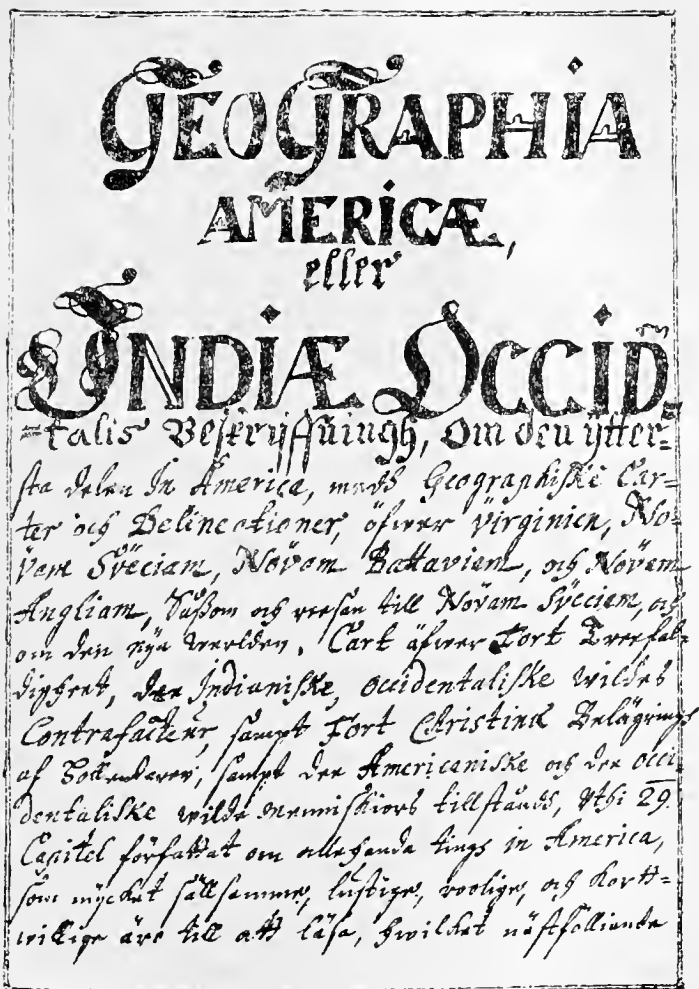 GEOGRAPHIA
AMERICÆ,
eller
INDIÆ OCCID̃=
=talis Beskryffningh, Om den ytter=
sta delen In America, medh Geographiske Car=
ter och Delineationer, öfwer Virginien, No=
vam Sveciam, Novam Battaviam, och Novam
Angliam, Såßom och reesan till Novam Sveciam, och
om den nya werlden. Cart äfwer Fort Treefal=
digheet, dee Indianiske, Occidentaliske wildes
Contrafacteur, sampt Fort Christinæ Belägrings
af Hollendaren, sampt dee Americaniske och dee occi
dentaliske wilde Menniskiors tillståndh, Uthi 29.
Capitel författat om allehanda tings in America,
som mycket sällsamme, lustige, roolige, och kortt=
willige äre till att läsa, hwilket nästfölliande